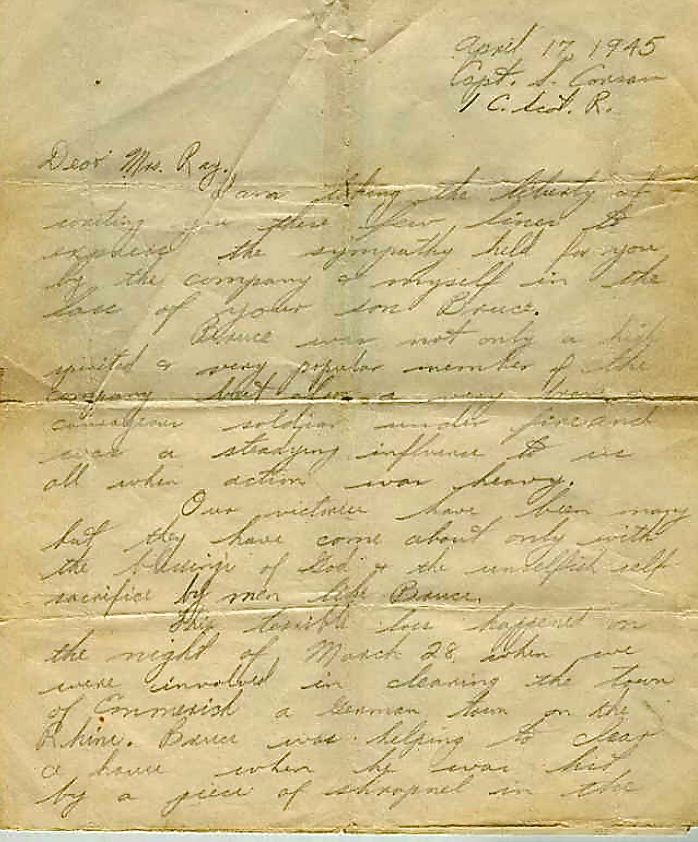 April 17, 1945
Capt. S. Conran
1 C. Scot. R.
Dear Mrs. Ray.
I am taking the liberty of
writing you these few lines to
express the sympathy held for you
by the company & myself in the
loss of your son Bruce.
Bruce was not only a high
spirited & very popular member of the
company but also a very brave &
courageous soldier under fire and
was a steadying influence to us
all when action was heavy.
Our victories have been many
but they have come about only with
the blessings of God & the unselfish self
sacrifice by men like Bruce.
This terrible loss happened on
the night of March 28, when we
were involved in clearing the town
of Emmerich a German town on the
Rhine. Bruce was helping to clear
a house when he was hit
by a piece of shrapnel in the